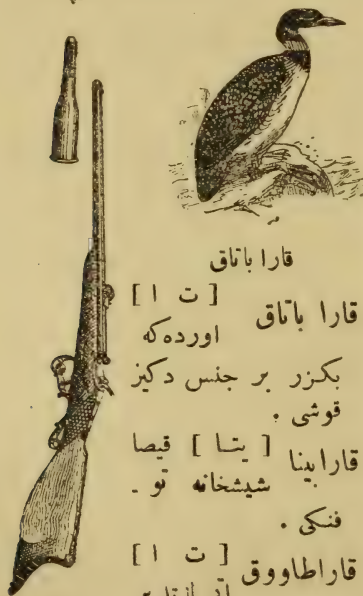 قارا باتاق
قارا باتاق [ ت ا ]
اورده‌كه
بكزر بر جنس دكيز
قوشى .
قارابينا [ يتا ] قيصا
شيشخانه تو ـ
فنكى .
قاراطاووق [ ت ا ]